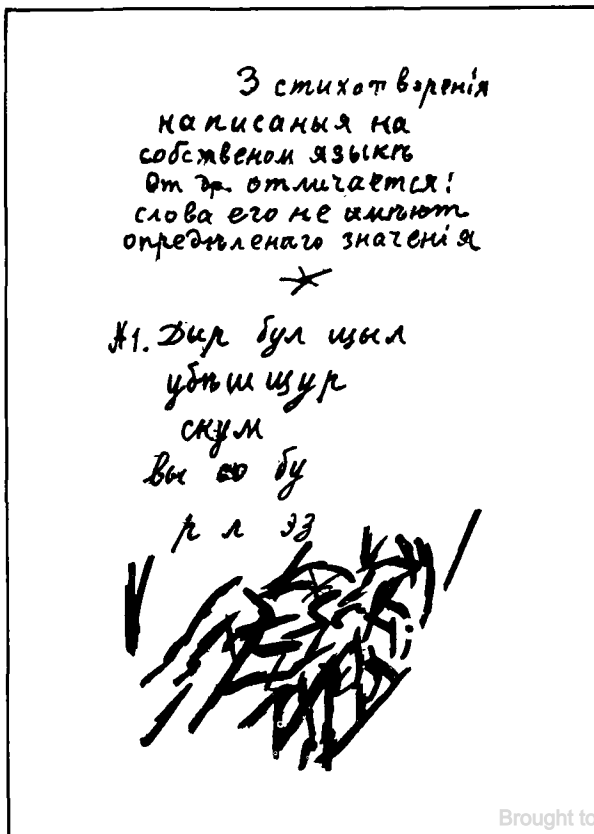 3 стихотворенія
написаныя на
собственом языкѣ
От др. отличается:
слова его не имѣют
опредѣленаго значенія
№1. Дыр бул щыл
убѣшщур
скум
вы со бу
р л эз
Brought to